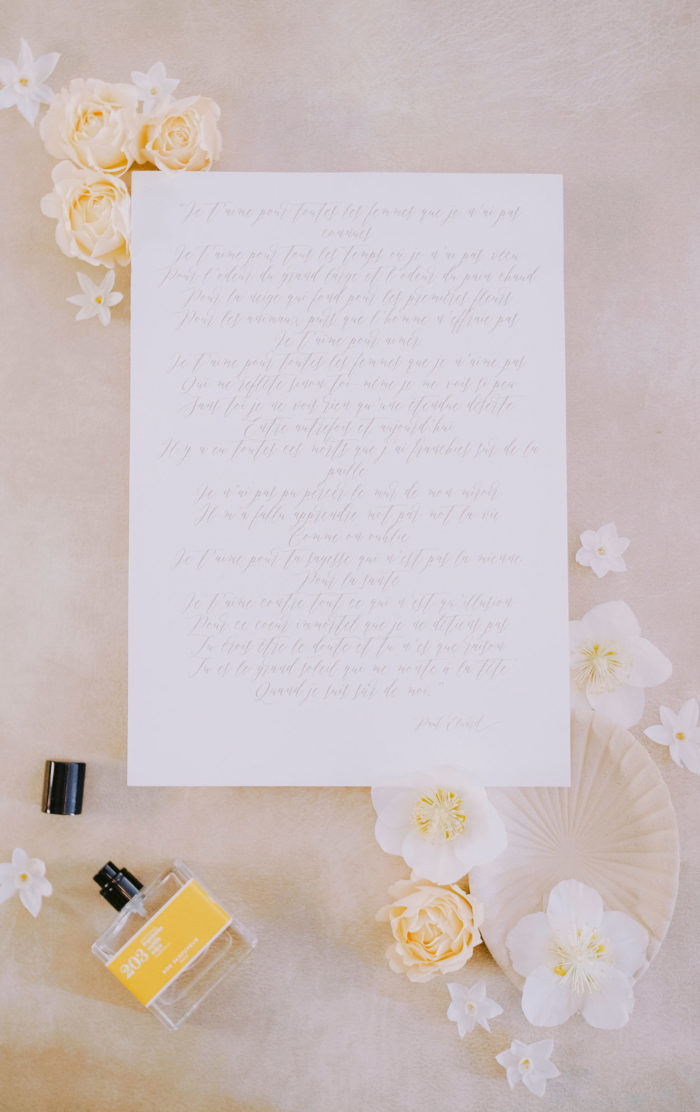 "Je t'aime pour toutes les femmes que je n'ai pas
connues
Je t'aime pour tous les temps où je n'ai pas vécu
Pour l'odeur du grand large et l'odeur du pain chaud
Pour la neige qui fond pour les premières fleurs
Pour les animaux purs que l'homme n'effraie pas
Je t'aime pour aimer
Je t'aime pour toutes les femmes que je n'aime pas
Qui me reflète sinon toi-même je me vois si peu
Sans toi je ne vois rien qu'une étendue déserte
Entre autrefois et aujourd'hui
Il y a eu toutes ces morts que j'ai franchies sur de la
paille
Je n'ai pas pu percer le mur de mon miroir
Il m'a fallu apprendre mot par mot la vie
Comme on oublie
Je t'aime pour ta sagesse qui n'est pas la mienne
Pour la santé
Je t'aime contre tout ce qui n'est qu'illusion
Pour ce coeur immortel que je ne détiens pas
Tu crois être le doute et tu n'es que raison
Tu es le grand soleil qui me monte à la tête
Quand je suis sûr de moi."
Paul Eluard
203
BON PARFUMEUR